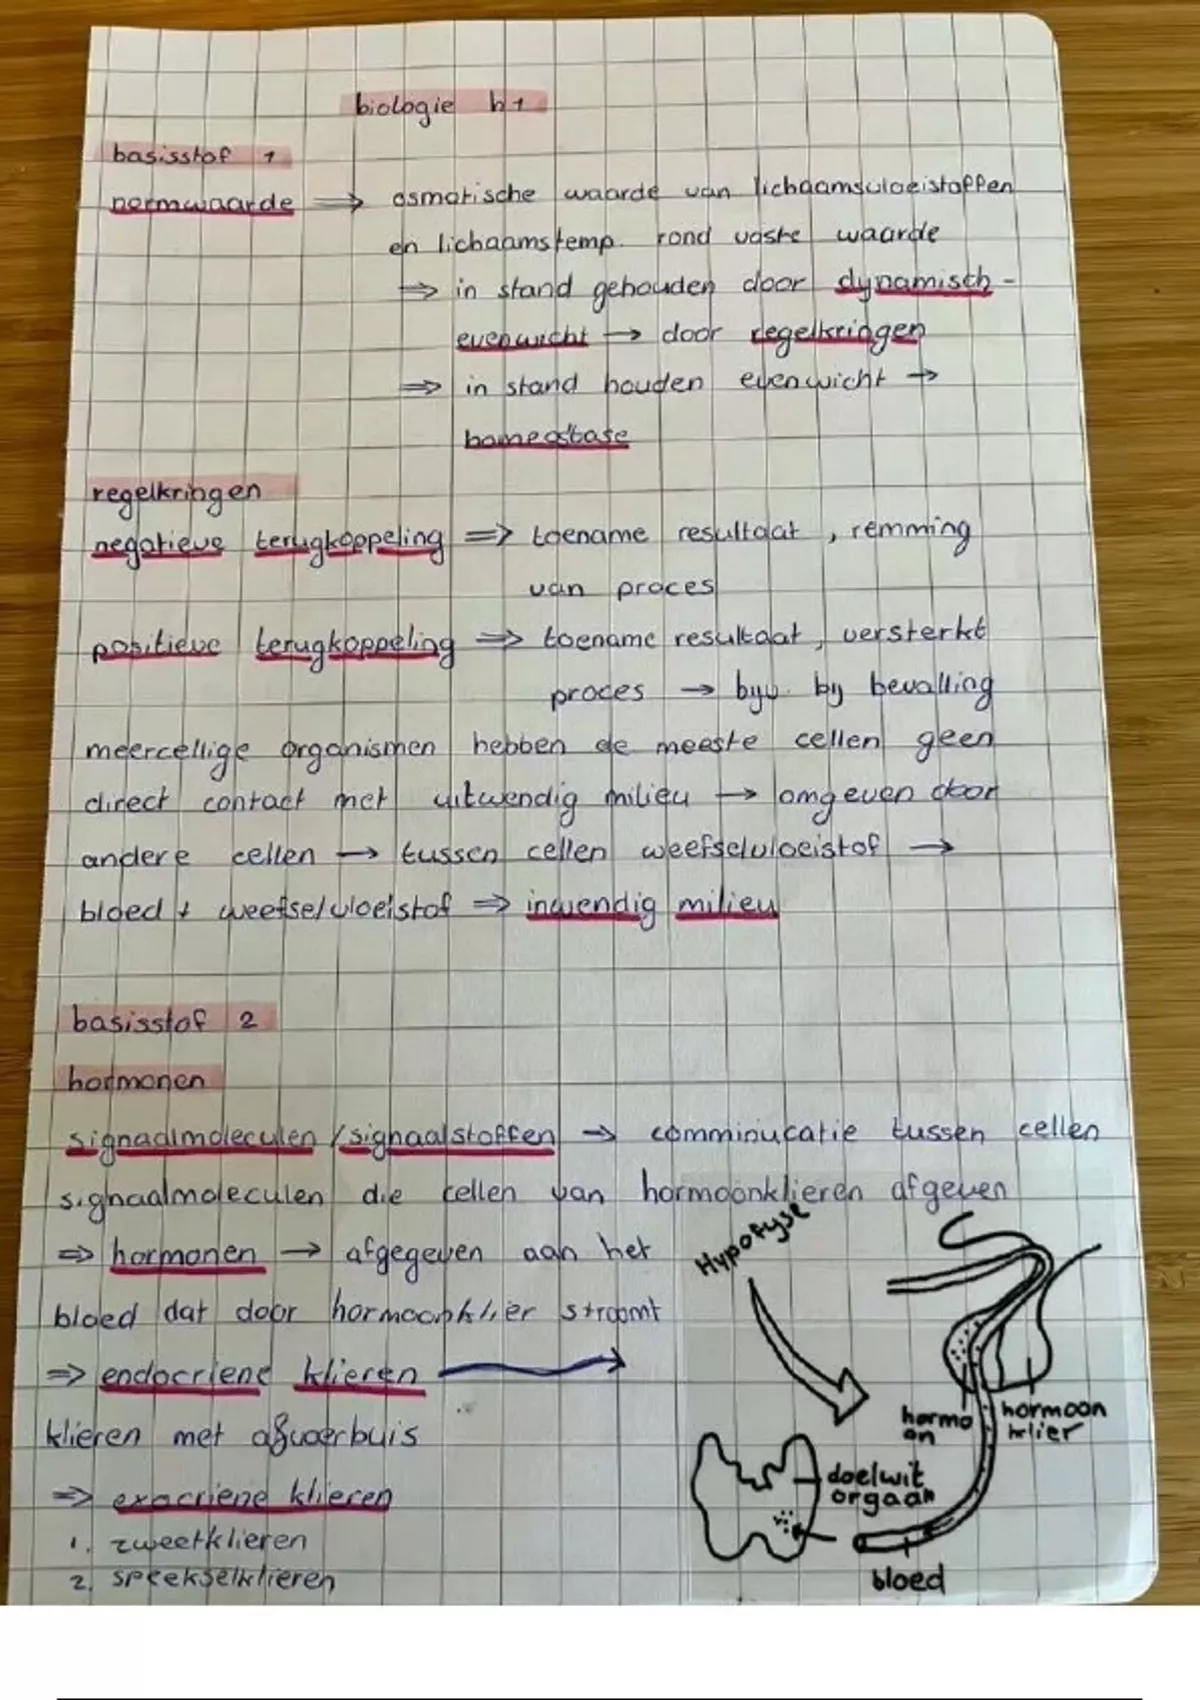 biologie h1
basisstof 1
normwaarde ⇒ osmotische waarde van lichaamsvloeistoffen
en lichaamstemp. rond vaste waarde
⇒ in stand gehouden door dynamisch-
evenwicht → door regelkringen
⇒ in stand houden evenwicht →
homeostase
regelkringen
negatieve terugkoppeling ⇒ toename resultaat, remming
van proces
positieve terugkoppeling ⇒ toename resultaat, versterkt
proces → bijv. bij bevalling
meercellige organismen hebben de meeste cellen geen
direct contact met uitwendig milieu → omgeven door
andere cellen → tussen cellen weefselvloeistof →
bloed + weefselvloeistof ⇒ inwendig milieu
basisstof 2
hormonen
signaalmoleculen / signaalstoffen → comminucatie tussen cellen
signaalmoleculen die cellen van hormoonklieren afgeven
⇒ hormonen → afgegeven aan het
bloed dat door hormoonklier stroomt
⇒ endocriene klieren →
klieren met afvoerbuis
⇒ exocriene klieren
1. zweetklieren
2. speekselklieren
Hypofyse
hormo
on
hormoon
klier
doelwit
orgaan
bloed